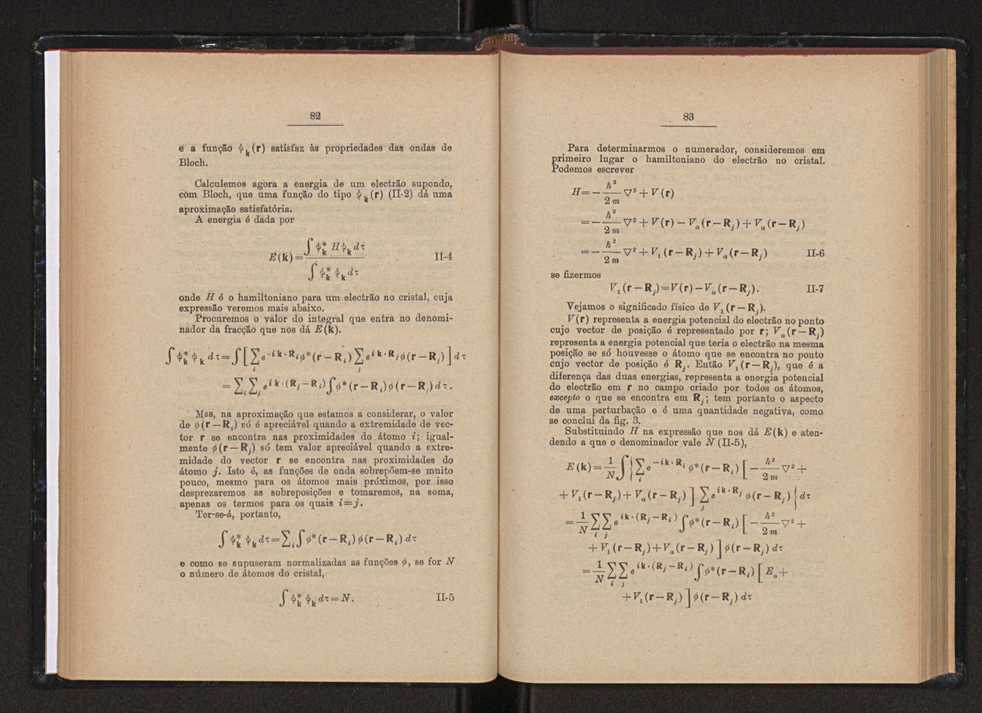 82
e a função ψk(r) satisfaz às propriedades das ondas de
Bloch.
Calculemos agora a energia de um electrão supondo,
com Bloch, que uma função do tipo ψk(r) (II-2) dá uma
aproximação satisfatória.
A energia é dada por
E(k) = ∫ψ*k H ψk dτ / ∫ψ*k ψk dτ II-4
onde H é o hamiltoniano para um electrão no cristal, cuja
expressão veremos mais abaixo.
Procuremos o valor do integral que entra no denomi-
nador da fracção que nos dá E(k).
∫ψ*k ψk dτ = ∫[∑i e^{-ik·Ri} φ*(r−Ri) ∑j e^{ik·Rj} φ(r−Rj)] dτ
= ∑i ∑j e^{ik·(Rj−Ri)} ∫φ*(r−Ri) φ(r−Rj) dτ.
Mas, na aproximação que estamos a considerar, o valor
de φ(r−Ri) só é apreciável quando a extremidade de vec-
tor r se encontra nas proximidades do átomo i; igual-
mente φ(r−Rj) só tem valor apreciável quando a extre-
midade do vector r se encontra nas proximidades do
átomo j. Isto é, as funções de onda sobrepõem-se muito
pouco, mesmo para os átomos mais próximos, por isso
desprezaremos as sobreposições e tomaremos, na soma,
apenas os termos para os quais i=j.
Ter-se-á, portanto,
∫ψ*k ψk dτ = ∑i ∫φ*(r−Ri) φ(r−Ri) dτ
e como se supuseram normalizadas as funções φ, se for N
o número de átomos do cristal,
∫ψ*k ψk dτ = N. II-5
83
Para determinarmos o numerador, consideremos em
primeiro lugar o hamiltoniano do electrão no cristal.
Podemos escrever
H = −ħ²/2m ∇² + V(r)
= −ħ²/2m ∇² + V(r) − Va(r−Rj) + Va(r−Rj)
= −ħ²/2m ∇² + V1(r−Rj) + Va(r−Rj) II-6
se fizermos
V1(r−Rj) = V(r) − Va(r−Rj). II-7
Vejamos o significado físico de V1(r−Rj).
V(r) representa a energia potencial do electrão no ponto
cujo vector de posição é representado por r; Va(r−Rj)
representa a energia potencial que teria o electrão na mesma
posição se só houvesse o átomo que se encontra no ponto
cujo vector de posição é Rj. Então V1(r−Rj), que é a
diferença das duas energias, representa a energia potencial
do electrão em r no campo criado por todos os átomos,
excepto o que se encontra em Rj; tem portanto o aspecto
de uma perturbação e é uma quantidade negativa, como
se conclui da fig. 3.
Substituindo H na expressão que nos dá E(k) e aten-
dendo a que o denominador vale N (II-5),
E(k) = 1/N ∫{∑i e^{−ik·Ri} φ*(r−Ri) [−ħ²/2m ∇² +
+ V1(r−Rj) + Va(r−Rj)] ∑j e^{ik·Rj} φ(r−Rj)} dτ
= 1/N ∑i ∑j e^{ik·(Rj−Ri)} ∫φ*(r−Ri) [−ħ²/2m ∇² +
+ V1(r−Rj) + Va(r−Rj)] φ(r−Rj) dτ
= 1/N ∑i ∑j e^{ik·(Rj−Ri)} ∫φ*(r−Ri) [Eo +
+ V1(r−Rj)] φ(r−Rj) dτ